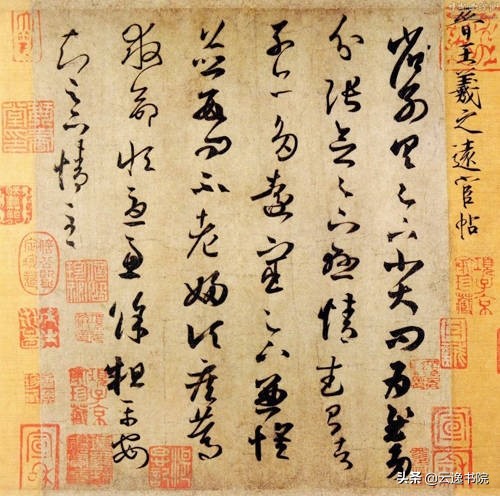 晉王羲之遠宦帖
省別具足下小大問為慰多
分張念足下懸情武昌諸
子亦多遠宦足下兼懷
並數問不老婦頃疾篤
救命恒憂慮餘粗平安
知足下情至
項子京家珍藏
宣和
头条 @云逸书院